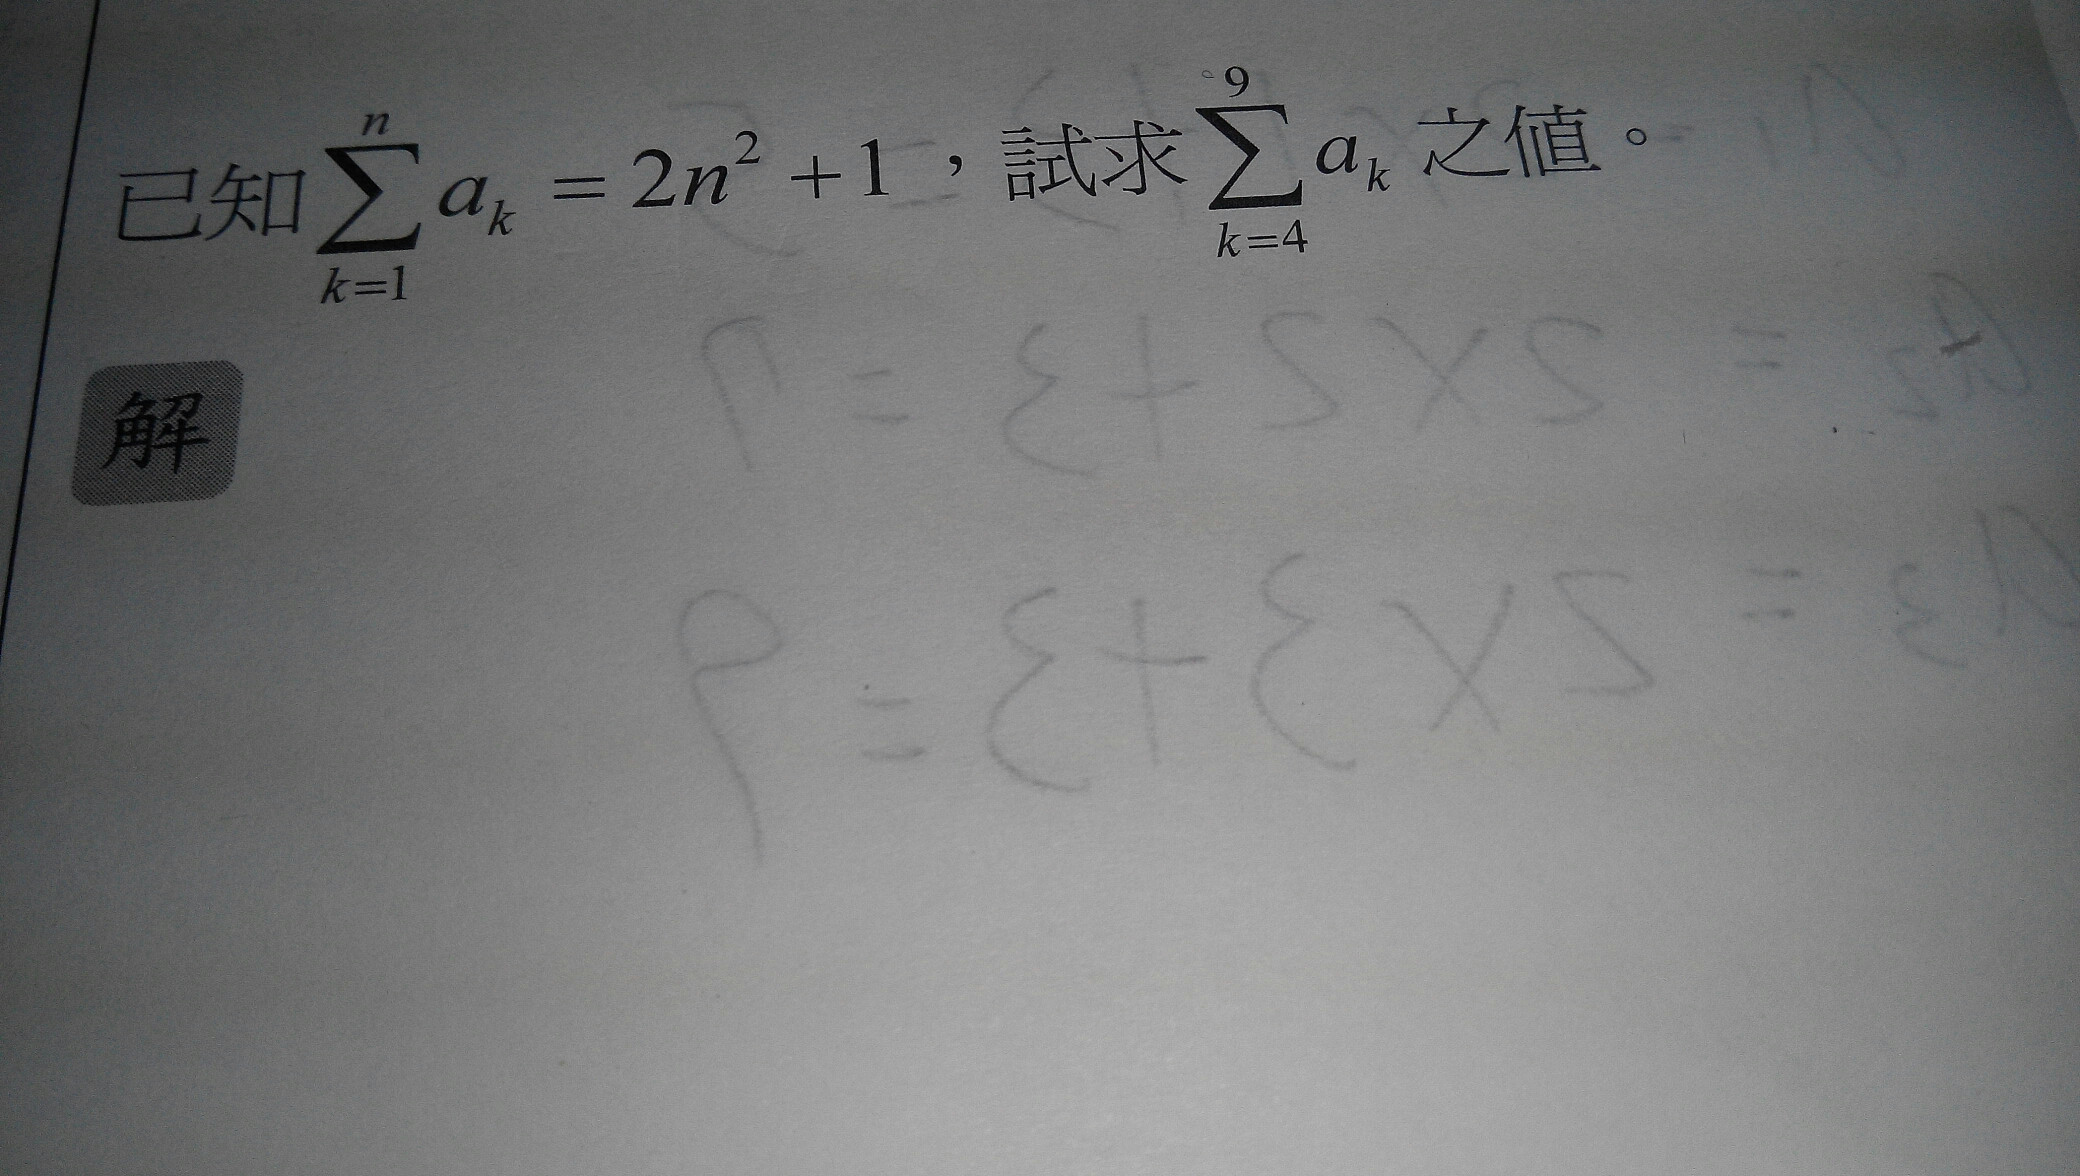 已知 \sum_{k=1}^{n} a_k = 2n^2 + 1，試求 \sum_{k=4}^{9} a_k 之值。
解